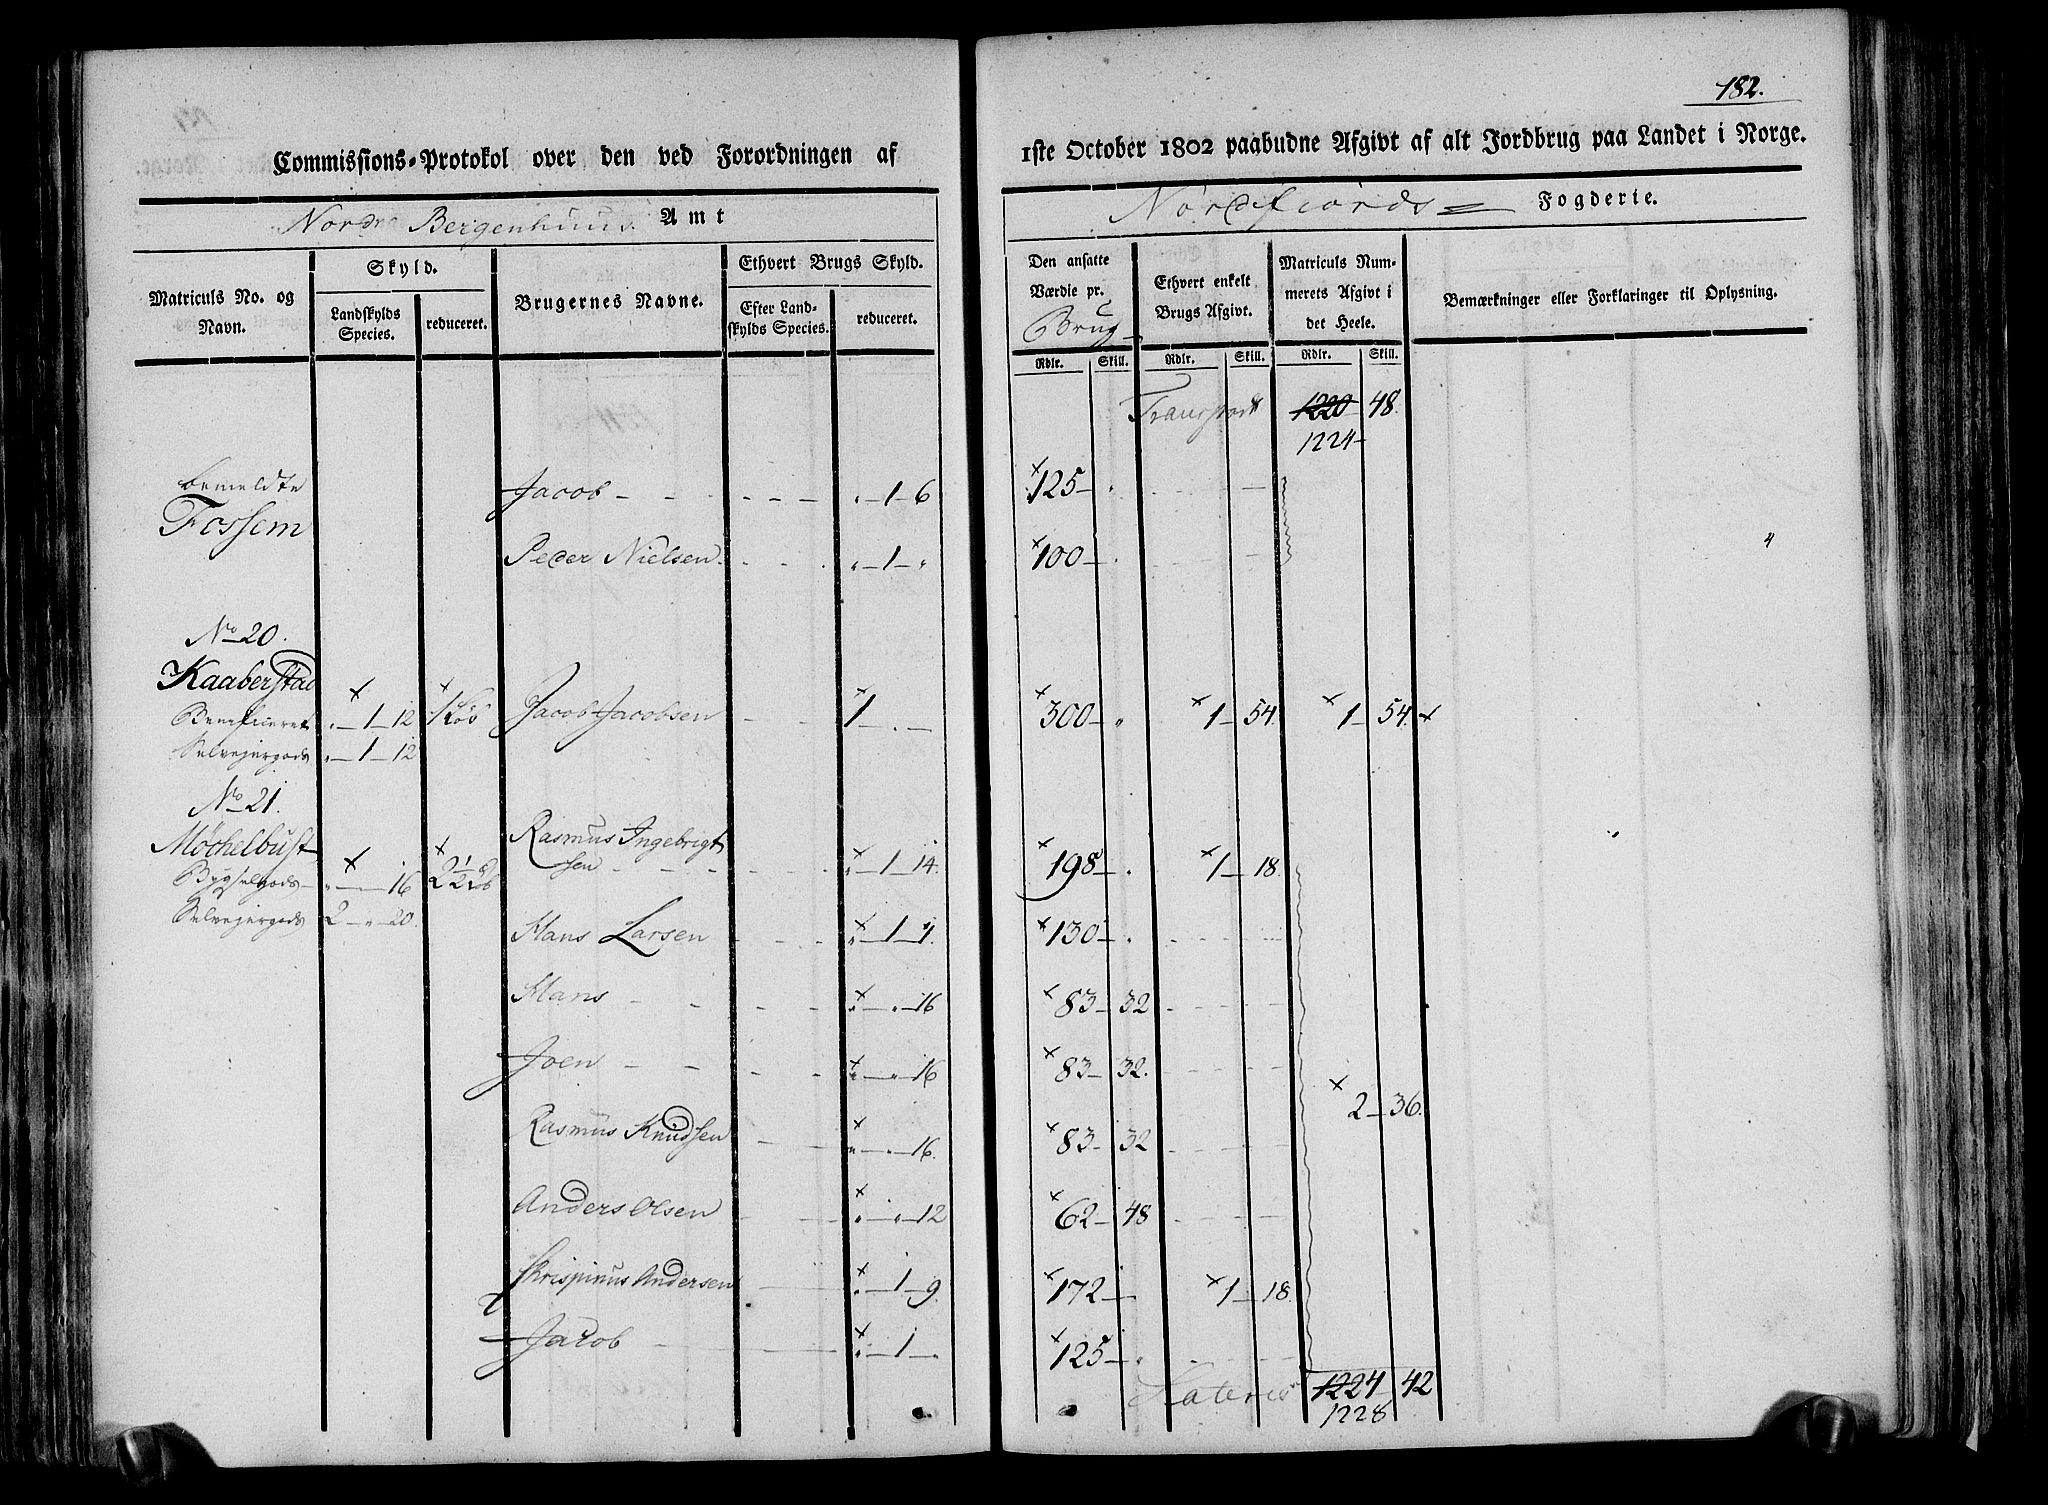 182.
Commissions-Protokol over den ved Forordningen af
1ste October 1802 paabudne Afgivt af alt Jordbrug paa Landet i Norge.
Nordre Bergenhuus Amt
Nordfiords Fogderie.
Matriculs No. og Navn.
Skyld.
Landskylds Species.
reduceret.
Brugernes Navne.
Ethvert Brugs Skyld.
Efter Landskylds Species.
reduceret.
Den ansatte Værdie pr. Brug
Ethvert enkelt Brugs Afgivt.
Matriculs Nummerets Afgivt i det Heele.
Bemærkninger eller Forklaringer til Oplysning.
Rdlr. Skill. Rdlr. Skill. Rdlr. Skill.
Transport 1220 48.
1224
bemeldte
Fossem
Jacob - - - - - „ 1 6 × 125 „
Peder Nielsen - - - „ 1 „ × 100 „
No 20.
Kaaberstad
Beneficeret „ 1 12 Jacob Jacobsen - - × 1 „ × 300 „ × 1 54. × 1 54. ×
Selvejergods „ 1 12
No 21.
Møchelbust
Rasmus Ingebrigtsen - - - - × „ 1 14. × 198 „ × 1 18.
Bygselgods „ „ 16
Selvejergods 2 „ 20.
Hans Larsen - - - × „ 1 1. × 130 „
Hans - - - - × „ „ 16 × 83 32
Joen - - - - × „ „ 16 × 83 32.
× 2 36.
Rasmus Knudsen - - × „ „ 16. × 83 32
Anders Olsen - - × „ „ 12 × 62 48
Chrispinus Andersen × „ 1 9. × 172 × 1 18.
Jacob × „ 1 „ × 125 „
Lateris 1224 42
1228